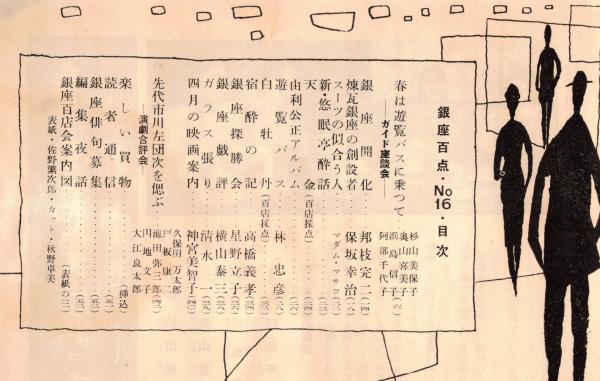 銀座百点・No16・目次
春は遊覧バスに乗つて
―ガイド座談会
杉山美保子
奥山喜美子
浜島信子
阿部千代子
(六)
銀座開化 邦枝完二
煉瓦銀座の創設者 保坂幸治
スーツの似合う人 マダム・マサコ
新・悠眠亭酔話
天金(百店採点)
由利公正アルバム
遊覧バス 林忠彦
白牡丹(百店採点)
宿酔の記 高橋義孝
銀座探勝会 星野立子
銀座戯評 横山泰三
ガラス張り 清水一
四月の映画案内 神宮美智子
先代市川左団次を偲ぶ
―演劇合評会
久保田万太郎
戸板康二
池田弥三郎
円地文子
大江良太郎
楽しい買物 (挿込)
読者通信
銀座俳句募集
編集夜話
銀座百店会案内図 (表紙の三)
表紙・佐野繁次郎・カット・秋野卓美